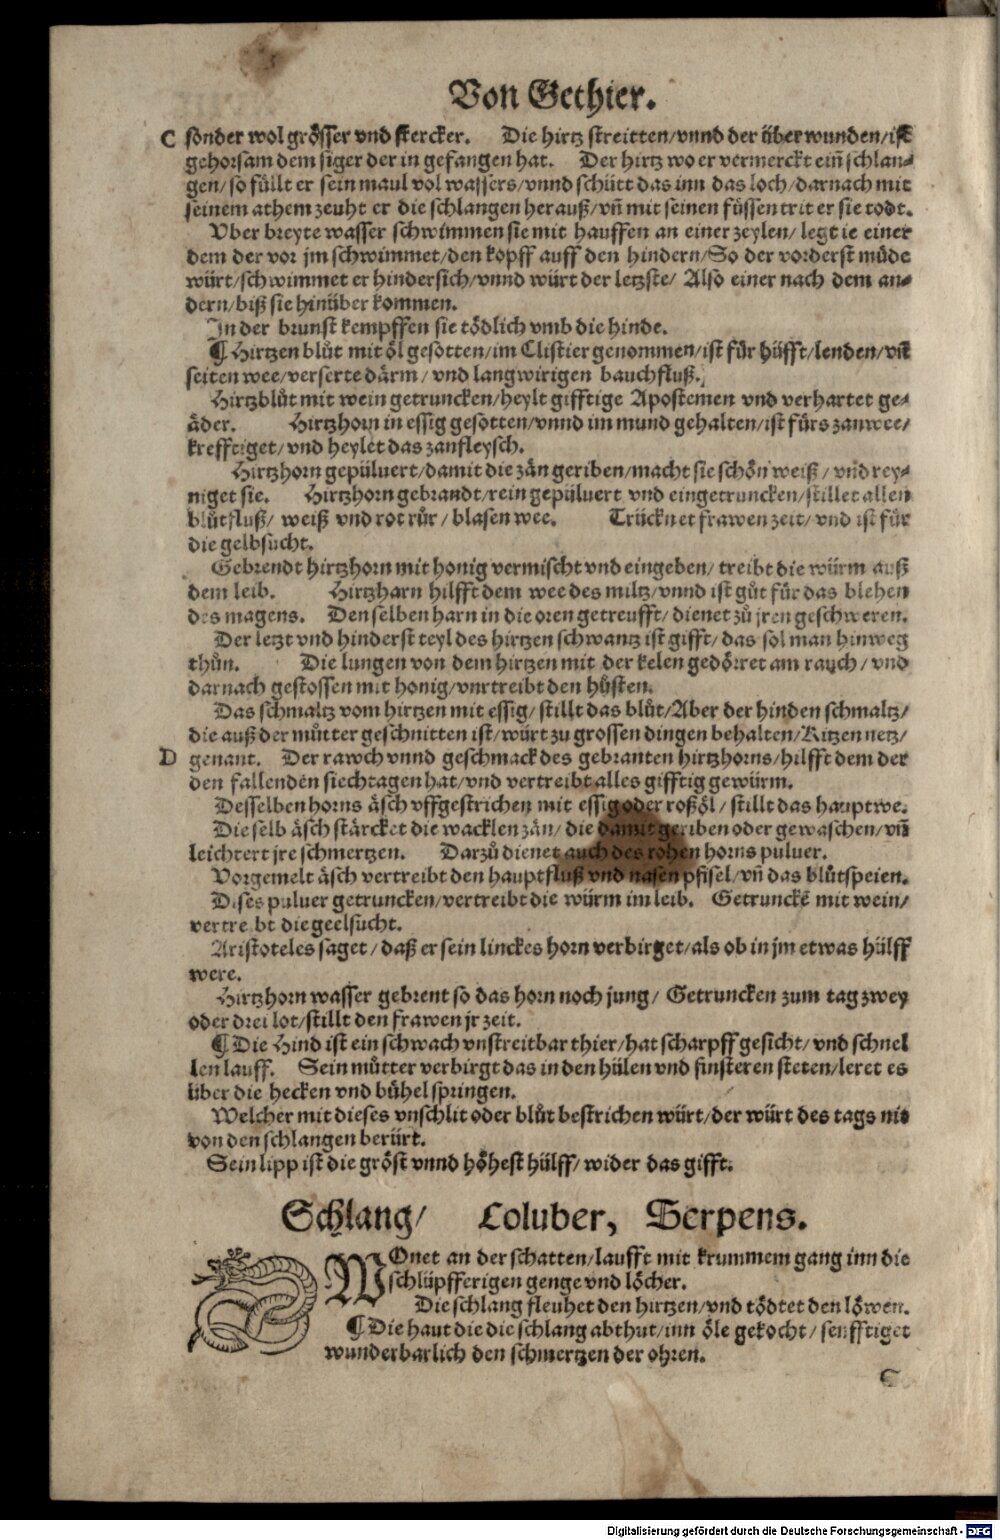 Von Gethier.
C sonder wol grösser vnd stercker. Die hirtz streitten/vnnd der überwunden/ist
gehorsam dem siger der in gefangen hat. Der hirtz wo er vermerckt ein̄ schlan-
gen/so füllt er sein maul vol wassers/vnnd schütt das inn das loch/darnach mit
seinem athem zeuht er die schlangen herauß/vn̄ mit seinen füssen trit er sie todt.
Vber breyte wasser schwimmen sie mit hauffen an einer zeylen/legt ie einer
dem der vor jm schwimmet/den kopff auff den hindern/So der vorderst müde
würt/schwimmet er hindersich/vnnd würt der letzste/Also einer nach dem an-
dern/biß sie hinüber kommen.
In der brunst kempffen sie tödlich vmb die hinde.
¶ Hirtzen blůt mit öl gesotten/im Clistier genommen/ist für hüfft/lenden/vn̄
seiten wee/verserte därm/vnd langwirigen bauchfluß.
Hirtzblůt mit wein getruncken/heylt gifftige Apostemen vnd verhartet ge-
äder. Hirtzhorn in essig gesotten/vnnd im mund gehalten/ist fürs zanwee/
krefftiget/vnd heylet das zanfleysch.
Hirtzhorn gepüluert/damit die zän geriben/macht sie schön weiß/vnd rey-
niget sie. Hirtzhorn gebrandt/rein gepüluert vnd eingetruncken/stillet allen
blůtfluß/weiß vnd rot růr/blasen wee. Trücknet frawen zeit/vnd ist für
die gelbsucht.
Gebrendt hirtzhorn mit honig vermischt vnd eingeben/treibt die würm auß
dem leib. Hirtzharn hilfft dem wee des miltz/vnnd ist gůt für das blehen
des magens. Den selben harn in die oren getreufft/dienet zů jren geschweren.
Der letzt vnd hinderst teyl des hirtzen schwantz ist gifft/das sol man hinweg
thůn. Die lungen von dem hirtzen mit der kelen gedörret am rauch/vnd
darnach gestossen mit honig/vertreibt den hůsten.
Das schmaltz vom hirtzen mit essig/stillt das blůt/Aber der hinden schmaltz/
die auß der můtter geschnitten ist/würt zu grossen dingen behalten/Kitzen netz/
D genant. Der rawch vnnd geschmack des gebranten hirtzhorns/hilfft dem der
den fallenden siechtagen hat/vnd vertreibt alles gifftig gewürm.
Desselben horns äsch vffgestrichen mit essig oder roßöl/stillt das hauptwe.
Die selb äsch stärcket die wacklen zän/die damit geriben oder gewaschen/vn̄
leichtert jre schmertzen. Darzů dienet auch des rohen horns puluer.
Vorgemelt äsch vertreibt den hauptfluß vnd nasen pfisel/vn̄ das blůtspeien.
Dises puluer getruncken/vertreibt die würm im leib. Getrunckē mit wein/
vertreibt die geelsucht.
Aristoteles saget/daß er sein linckes horn verbirget/als ob in jm etwas hülff
were.
Hirtzhorn wasser gebrent so das horn noch jung/Getruncken zum tag zwey
oder drei lot/stillt den frawen jr zeit.
¶ Die Hind ist ein schwach vnstreitbar thier/hat scharpff gesicht/vnd schnel
len lauff. Sein můtter verbirgt das in den hülen vnd finsteren steten/leret es
über die hecken vnd bühel springen.
Welcher mit dieses vnschlit oder blůt bestrichen würt/der würt des tags nit
von den schlangen berürt.
Sein lipp ist die gröst vnnd höhest hülff/wider das gifft.
Schlang/ Coluber, Serpens.
WOnet an der schatten/laufft mit krummem gang inn die
schlüpfferigen genge vnd löcher.
Die schlang fleuhet den hirtzen/vnd tödtet den löwen.
¶ Die haut die die schlang abthut/inn öle gekocht/senfftiget
wunderbarlich den schmertzen der ohren.
Digitalisierung gefördert durch die Deutsche Forschungsgemeinschaft - DFG